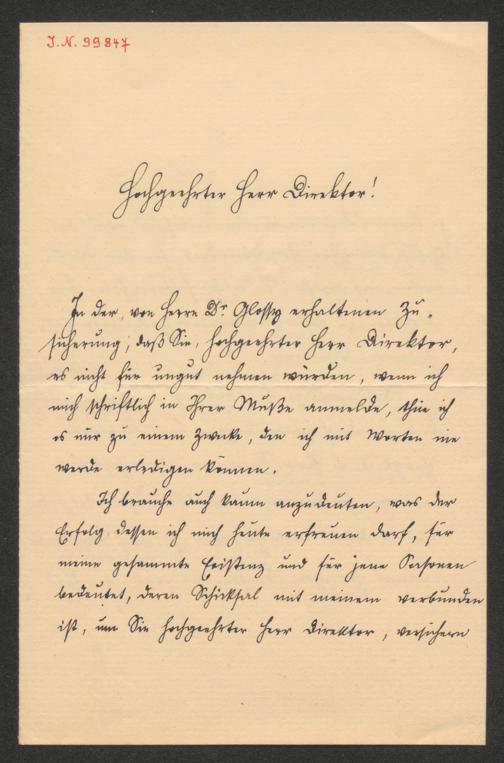 J.N. 99847
Hochgeehrter Herr Direktor!
In der, von Herrn Dr. Glossy erhaltenen Zu-
sicherung, daß Sie, hochgeehrter Herr Direktor,
es nicht für ungut nehmen würden, wenn ich
mich schriftlich in Ihrer Muße anmelde, thue ich
es nur zu einem Zwecke, den ich mit Worten nie
werde erledigen können.
Ich brauche auch kaum anzudeuten, was der
Erfolg, dessen ich mich heute erfreuen darf, für
meine gesammte Existenz und für jene Personen
bedeutet, deren Schicksal mit meinem verbunden
ist, um Sie hochgeehrter Herr Direktor, versichern